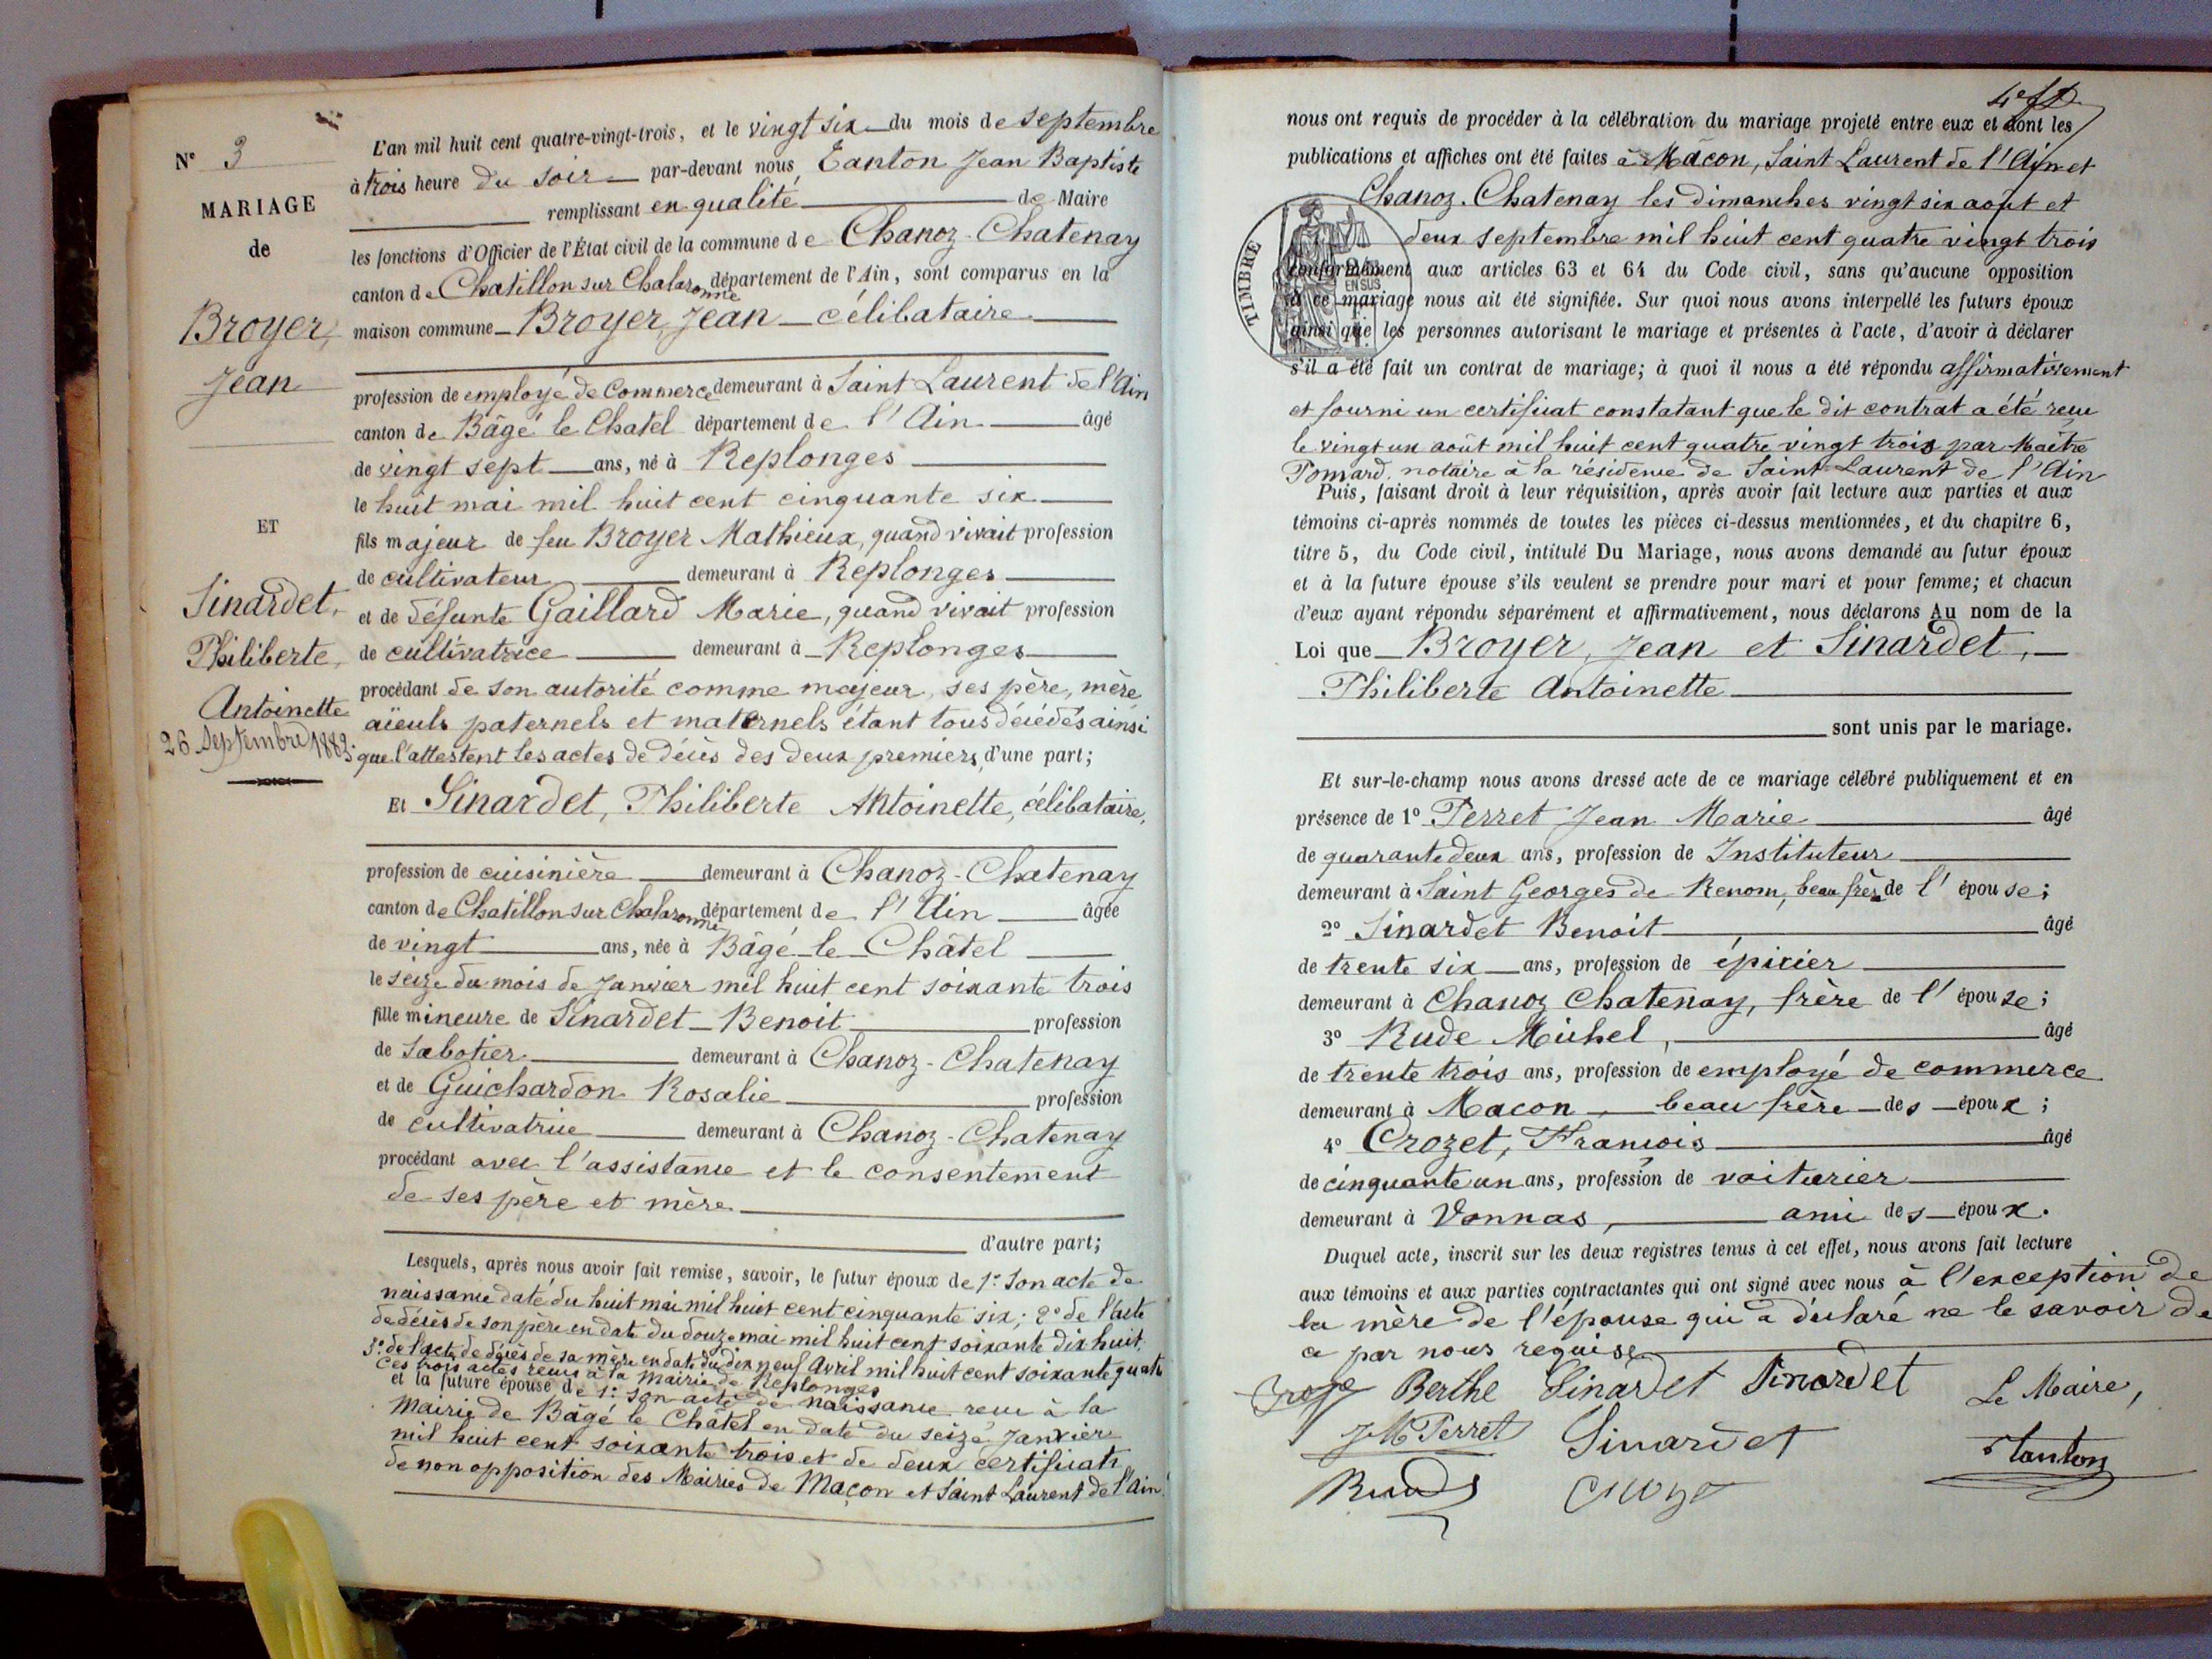 N° 3
MARIAGE
de
Broyer,
Jean
ET
Sinardet,
Philiberte,
Antoinette
26 Septembre 1883.
L'an mil huit cent quatre-vingt-trois, et le vingt six du mois de septembre
à trois heure du soir par-devant nous, Tanton Jean Baptiste
remplissant en qualité de Maire
les fonctions d'Officier de l'État civil de la commune de Chanoz-Chatenay
canton de Chatillon sur Chalaronne département de l'Ain, sont comparus en la
maison commune Broyer, Jean célibataire
profession de employé de Commerce demeurant à Saint Laurent de l'Ain
canton de Bâgé le Chatel département de l'Ain âgé
de vingt sept ans, né à Replonges
le huit mai mil huit cent cinquante six
fils majeur de feu Broyer Mathieux, quand vivait profession
de cultivateur demeurant à Replonges
et de défunte Gaillard Marie, quand vivait profession
de cultivatrice demeurant à Replonges
procédant de son autorité comme majeur, ses père, mère
aïeuls paternels et maternels étant tous décédés ainsi
que l'attestent les actes de décès des deux premiers, d'une part;
Et Sinardet, Philiberte Antoinette, célibataire,
profession de cuisinière demeurant à Chanoz-Chatenay
canton de Chatillon sur Chalaronne département de l'Ain âgée
de vingt ans, née à Bâgé-le-Châtel
le seize du mois de Janvier mil huit cent soixante trois
fille mineure de Sinardet Benoit profession
de Sabotier demeurant à Chanoz-Chatenay
et de Guichardon Rosalie profession
de cultivatrice demeurant à Chanoz-Chatenay
procédant avec l'assistance et le consentement
de ses père et mère
d'autre part;
Lesquels, après nous avoir fait remise, savoir, le futur époux de 1° Son acte de
naissance daté du huit mai mil huit cent cinquante six; 2° de l'acte
de décès de son père en date du douze mai mil huit cent soixante dix huit,
3° de l'acte de décès de sa mère en date du dix neuf Avril mil huit cent soixante quatre
Ces trois actes reçus à la Mairie de Replonges
et la future épouse de 1° son acte de naissance reçu à la
Mairie de Bâgé le Châtel en date du seize Janvier
mil huit cent soixante trois et de deux certificats
de non opposition des Mairies de Maçon et Saint Laurent de l'Ain.
nous ont requis de procéder à la célébration du mariage projeté entre eux et dont les
publications et affiches ont été faites à Mâcon, Saint Laurent de l'Ain et
Chanoz-Chatenay les dimanches vingt six août et
deux septembre mil huit cent quatre vingt trois
TIMBRE
EN SUS
conformément aux articles 63 et 64 du Code civil, sans qu'aucune opposition
à ce mariage nous ait été signifiée. Sur quoi nous avons interpellé les futurs époux
ainsi que les personnes autorisant le mariage et présentes à l'acte, d'avoir à déclarer
s'il a été fait un contrat de mariage; à quoi il nous a été répondu affirmativement
et fourni un certificat constatant que le dit contrat a été reçu
le vingt un août mil huit cent quatre vingt trois par Maître
Pomard, notaire à la résidence de Saint-Laurent de l'Ain
Puis, faisant droit à leur réquisition, après avoir fait lecture aux parties et aux
témoins ci-après nommés de toutes les pièces ci-dessus mentionnées, et du chapitre 6,
titre 5, du Code civil, intitulé Du Mariage, nous avons demandé au futur époux
et à la future épouse s'ils veulent se prendre pour mari et pour femme; et chacun
d'eux ayant répondu séparément et affirmativement, nous déclarons Au nom de la
Loi que Broyer, Jean et Sinardet,
Philiberte Antoinette
sont unis par le mariage.
Et sur-le-champ nous avons dressé acte de ce mariage célébré publiquement et en
présence de 1° Perret Jean Marie âgé
de quarante deux ans, profession de Instituteur
demeurant à Saint Georges de Renom, beau frère de l'épouse;
2° Sinardet Benoit âgé
de trente six ans, profession de épicier
demeurant à Chanoz Chatenay, frère de l'épouse;
3° Rude Michel, âgé
de trente trois ans, profession de employé de commerce
demeurant à Macon, beau frère des époux;
4° Crozet, François âgé
de cinquante un ans, profession de voiturier
demeurant à Vonnas, ami des époux.
Duquel acte, inscrit sur les deux registres tenus à cet effet, nous avons fait lecture
aux témoins et aux parties contractantes qui ont signé avec nous à l'exception de
la mère de l'épouse qui a déclaré ne le savoir de
ce par nous requise
Berthe Sinardet Sinardet Le Maire,
JM Perret Sinardet Tanton
Rude